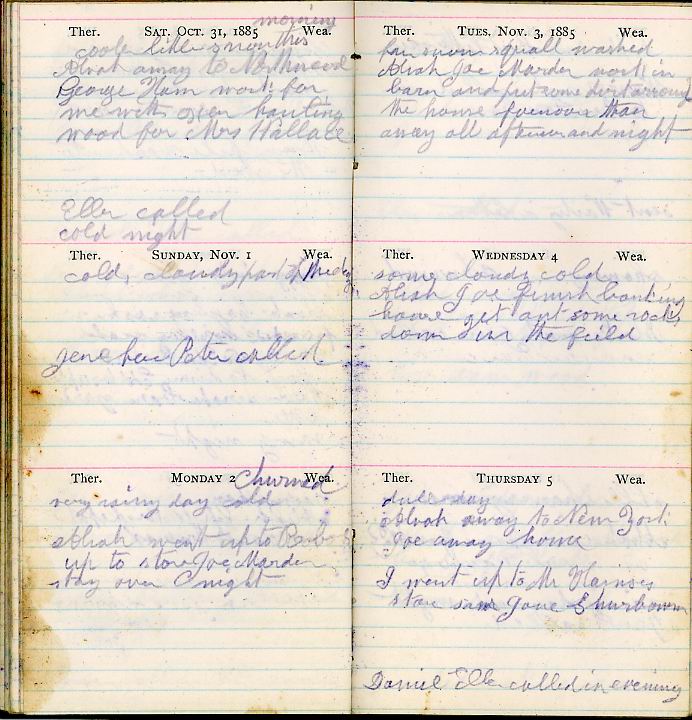 Ther. SAT. OCT. 31, 1885 Wea.
morning
cool little snow this
Abiah away to Northwood
George Ham work for
me with oxen hauling
wood for Mrs Wallace
Ellen called
cold night
Ther. SUNDAY, NOV. 1 Wea.
cold, cloudy part of the day
Jene Peter called
Ther. MONDAY 2 Wea.
Churned
very rainy day cold
Abiah went up to
up to store Joe Marder
stay over night
Ther. TUES. NOV. 3, 1885 Wea.
fair snow squall washed
Abiah Joe Marder work in
barn and put some dirt around
the house forenoon
away all afternoon and night
Ther. WEDNESDAY 4 Wea.
some cloudy cold
Abiah Joe finish banking
house get out some rocks
down in the field
Ther. THURSDAY 5 Wea.
dull day
Abiah away to New York
Joe away home
I went up to Mr
store saw Jane
Daniel Ellen called in evening